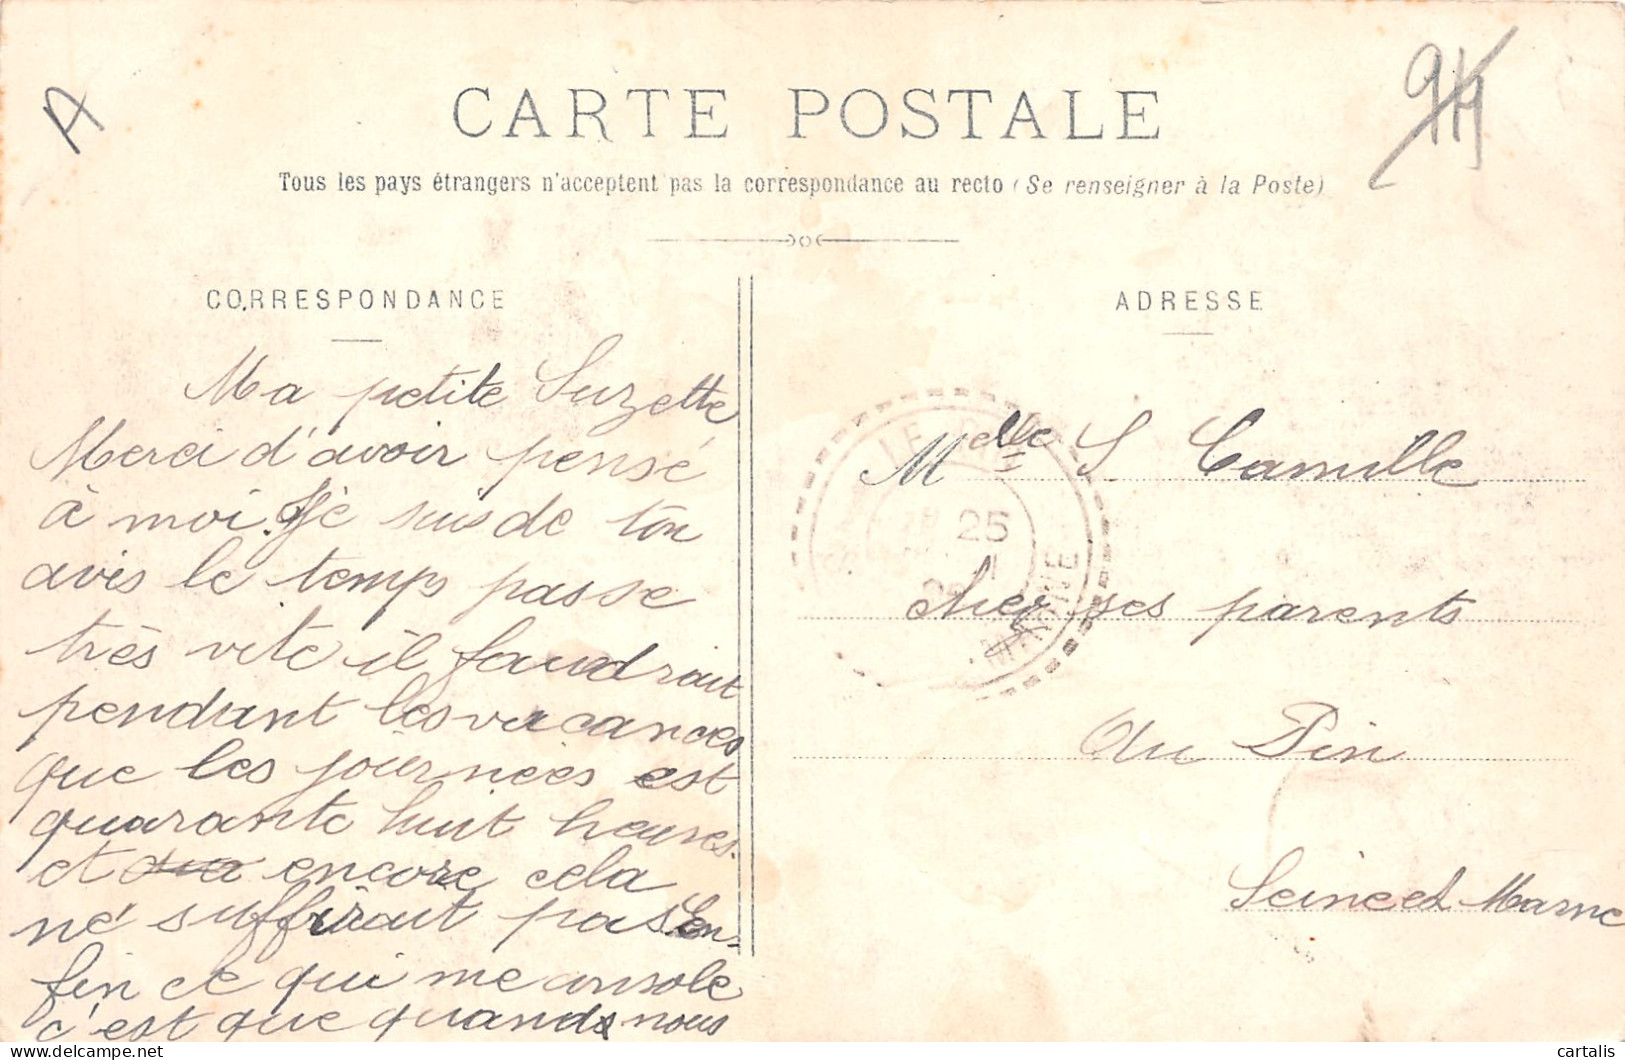 A
94
CARTE POSTALE
Tous les pays étrangers n'acceptent pas la correspondance au recto (Se renseigner à la Poste)
CORRESPONDANCE
Ma petite Suzette
Merci d'avoir pensé
à moi. Je suis de ton
avis le temps passe
très vite il faudrait
pendant les vacances
que les journées est
quarante huit heures.
et encore cela
ne suffirait pas en-
fin ce qui me console
c'est que quand nous
ADRESSE
Mdlle S Camille
chez ses parents
au Pin
Seine et Marne
LE PIN
25
MARNE
delcampe.net
cartalis